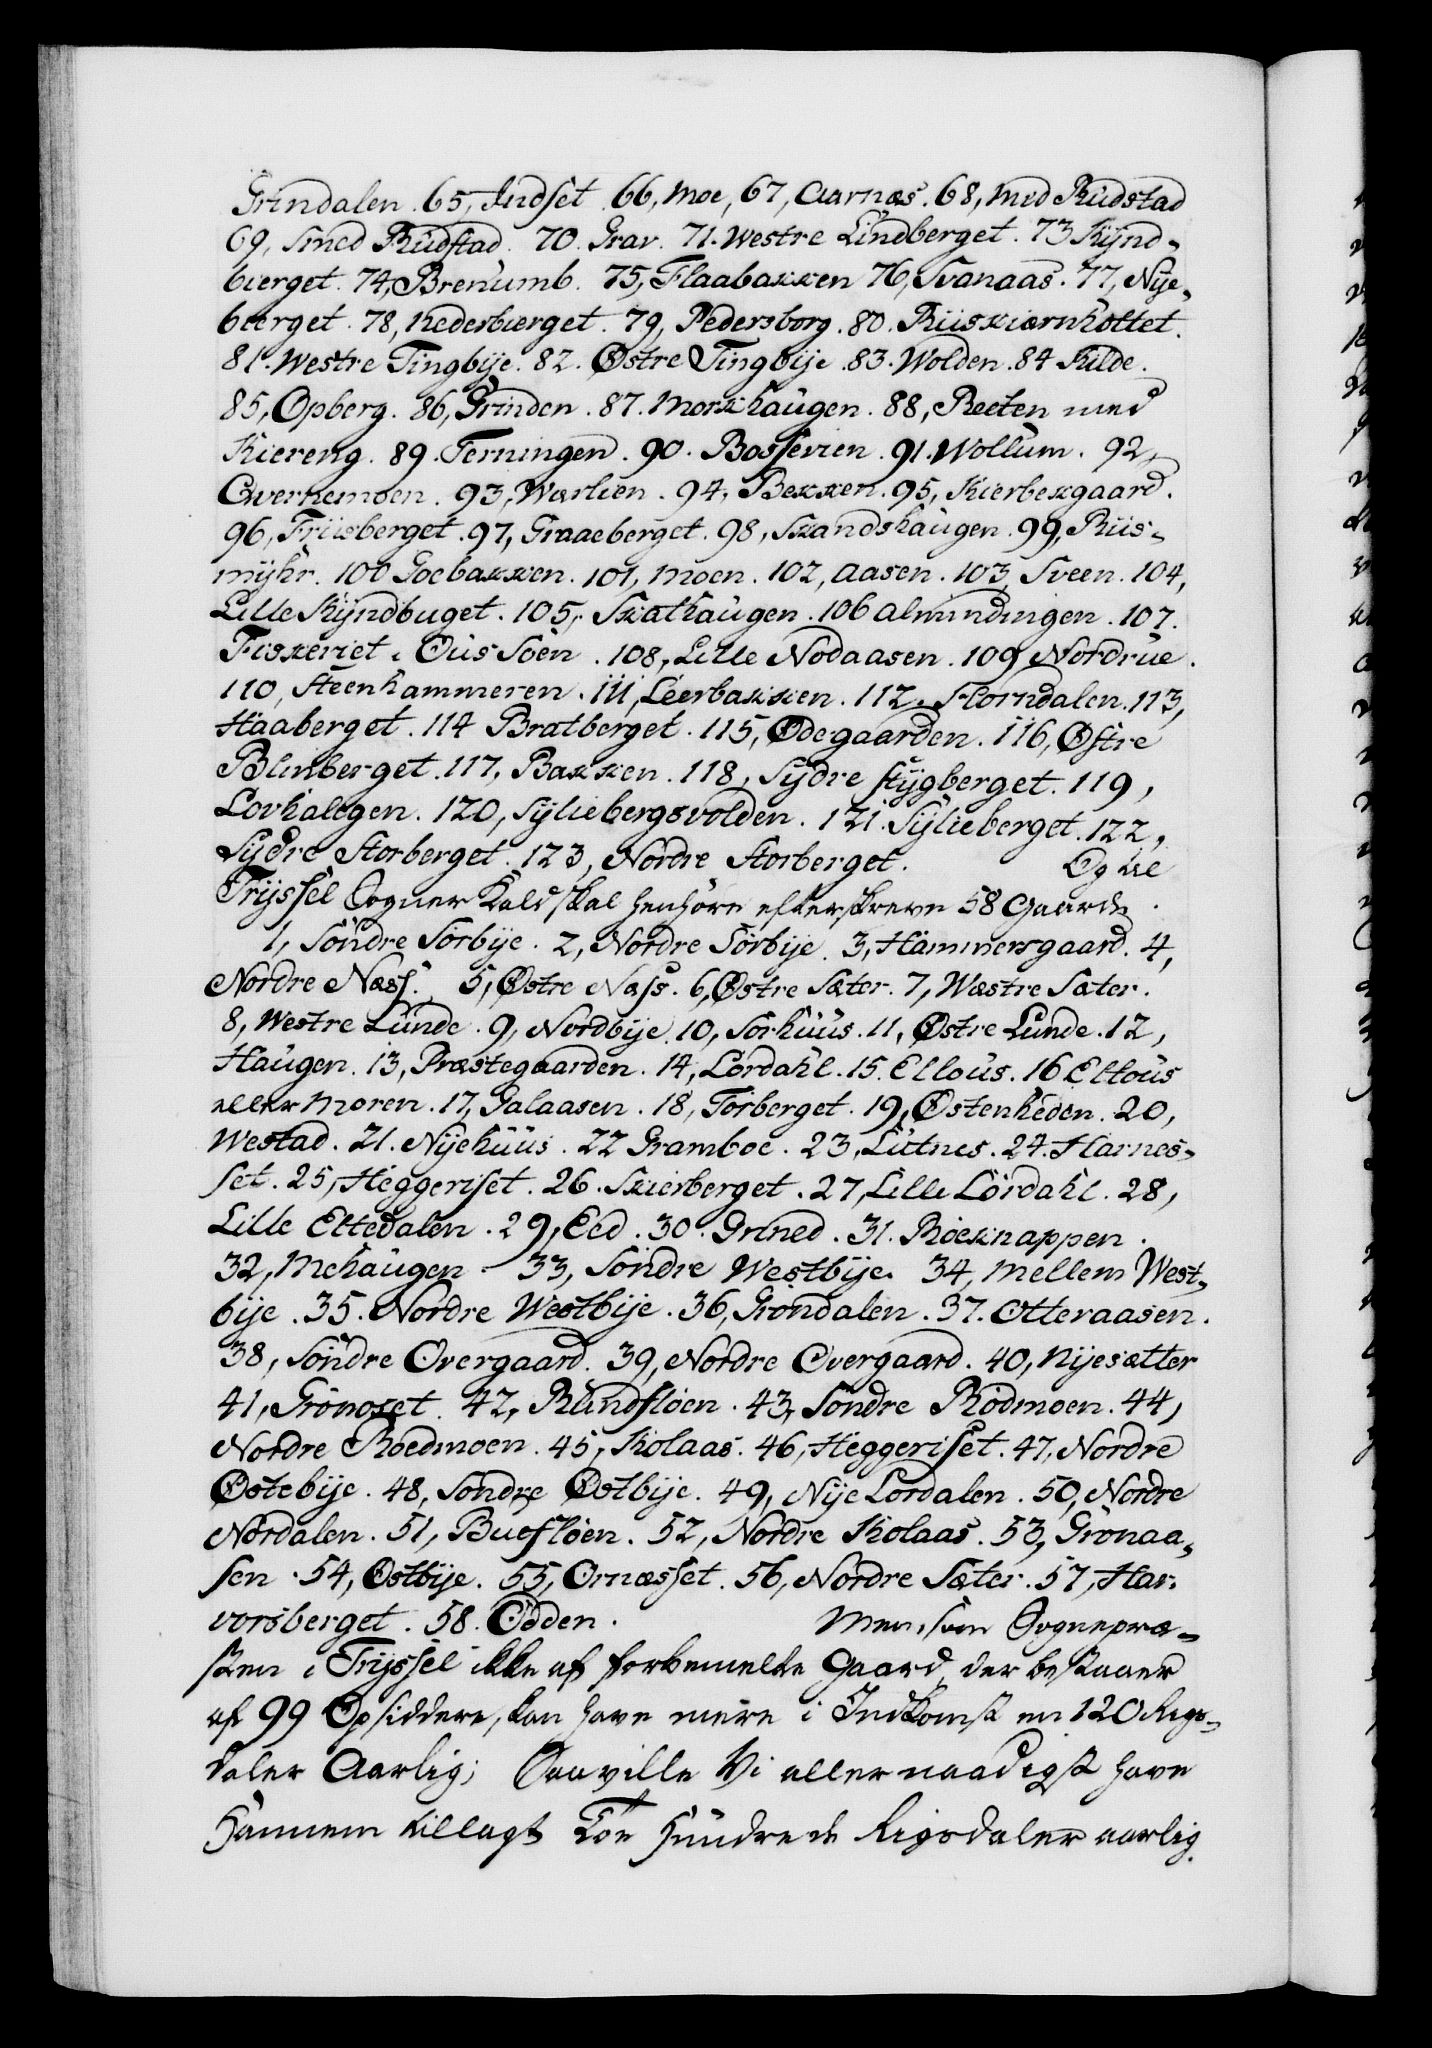 Grindalen. 65, Indset. 66, Moe, 67, Aarnæs. 68, Med Rudstad
69, Smed Rudstad. 70. Grav. 71. Westre Lindberget. 73 Kynd-
bierget. 74, Brenumb. 75, Flaabakken 76, Svanaas. 77, Nye-
bierget. 78, Kederbierget. 79, Pedersborg. 80. Riiskiærnhottet.
81. Westre Tingbye. 82. Østre Tingbye. 83. Wolden. 84 Kilde.
85, Opberg. 86, Grinden. 87. Morskhaugen. 88, Reeten med
Kiereng. 89. Terningen. 90. Bosserien. 91. Wollum. 92,
Qvernemoen. 93, Warlien. 94, Bekken. 95, Kierbekgaard.
96, Friisberget. 97, Graaeberget. 98, Skandshaugen. 99, Riis-
myhr. 100 Goebakken. 101, Moen. 102, Aasen. 103, Sveen. 104,
Lille Kyndbuget. 105, Skathaugen. 106 Almindingen. 107.
Fiskeriet i Ous Söen. 108, Lille Nodaasen. 109 Nordrue.
110, Steenhammeren. 111, Leerbakken. 112. Florndalen. 113,
Haaberget. 114 Bratberget. 115, Ødegaarden. 116, Østre
Blinberget. 117, Bakken. 118, Sydre Stygberget. 119,
Lovhalegen. 120, Syliebergsvolden. 121. Sylieberget. 122,
Sydre Storberget. 123, Nordre Storberget. Og til
Tryssel Sogne Kald skal henhöre efterskrevne 58 Gaarde.
1, Söndre Sörbye. 2, Nordre Sörbye. 3, Hammersgaard. 4,
Nordre Næss. 5, Østre Næss. 6, Østre Sæter. 7, Wæstre Sæter.
8, Westre Lunde. 9, Nordbye. 10, Sörhuus. 11, Østre Lunde. 12,
Haugen. 13, Præstegaarden. 14, Lördahl. 15. Ellous. 16 Eltous
eller Moren. 17, Galaasen. 18, Törberget. 19, Østenheden. 20,
Westad. 21. Nyehuus. 22 Gramboe. 23, Lutnes. 24. Harnes-
set. 25, Heggeriset. 26. Skierberget. 27, Lille Lördahl. 28,
Lille Eltedalen. 29, Eed. 30. Grined. 31. Röeknappen.
32, Mehaugen 33, Söndre Westbye. 34, Mellem West-
bye. 35. Nordre Westbye. 36, Gröndalen. 37. Otteraasen.
38, Söndre Overgaard. 39, Nordre Overgaard. 40, Nyesætter
41, Grönoset. 42, Rundflöen. 43, Söndre Rödmoen. 44,
Nordre Roedmoen. 45, Kolaas. 46, Heggeriset. 47, Nordre
Østebye. 48, Söndre Østbye. 49, Nye Lördalen. 50, Nordre
Nordalen. 51, Bueflöen. 52, Nordre Kolaas. 53, Grönaa-
sen. 54, Østbye. 55, Ornæsset. 56, Nordre Sæter. 57, Har-
vorsberget. 58. Odden. Men som Sognepræ-
sten i Tryssel ikke af forbemelte Gaard, der bestaaer
af 99 Opsiddere, kan have mere i Indkomst en 120 Rigs-
daler Aarlig; Saa ville Vi allernaadigst have
hannem tillagt Toe Hundrede Rigsdaler aarlig.